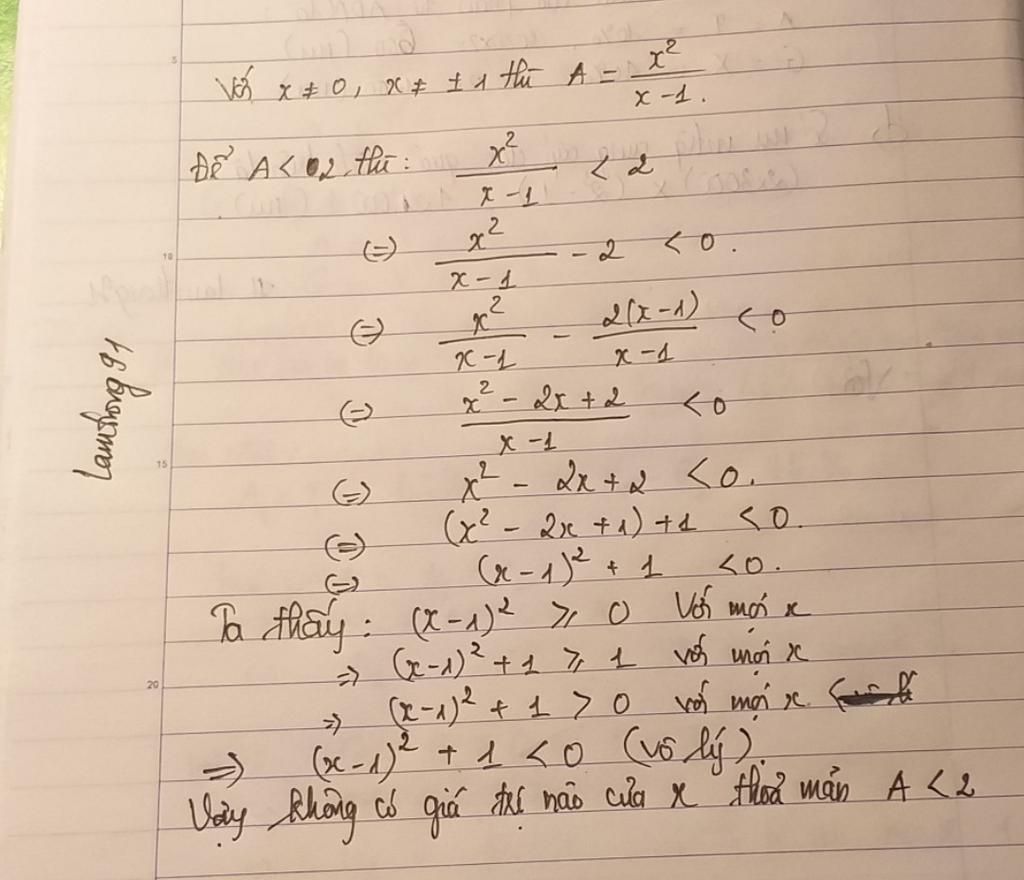 5
Với x ≠ 0, x ≠ ± 1 thì A = x²/(x-1).
Để A < 2 thì: x²/(x-1) < 2
10
(=) x²/(x-1) - 2 < 0.
(=) x²/(x-1) - 2(x-1)/(x-1) < 0
(=) (x² - 2x + 2)/(x-1) < 0
15
(=) x² - 2x + 2 < 0.
(=) (x² - 2x + 1) + 1 < 0.
(=) (x-1)² + 1 < 0.
Ta thấy: (x-1)² ≥ 0 Với mọi x
=> (x-1)² + 1 ≥ 1 với mọi x
20
=> (x-1)² + 1 > 0 với mọi x
=> (x-1)² + 1 < 0 (vô lý).
Vậy không có giá trị nào của x thoả mãn A < 2
lamthong91